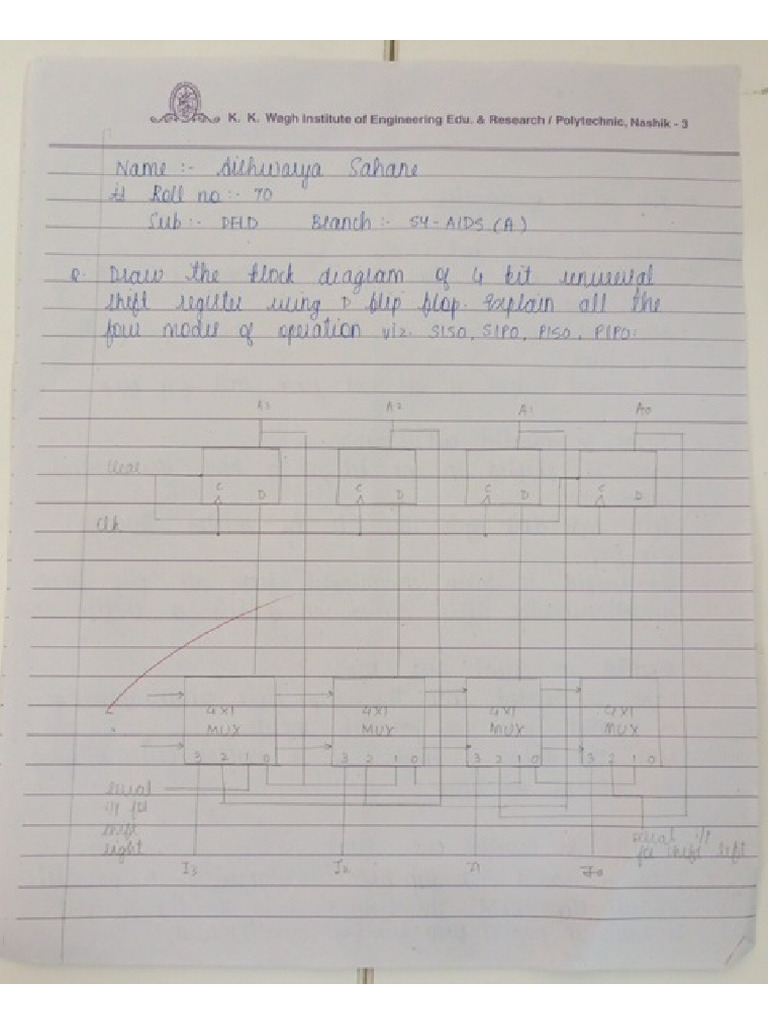 K. K. Wagh Institute of Engineering Edu. & Research / Polytechnic, Nashik - 3
Name :- Aishwarya Sahane
Roll no :- 70
Sub :- DELD Branch :- SY-AIDS (A)
Q. Draw the block diagram of 4 bit universal
shift register using D flip flop. Explain all the
four modes of operation viz. SISO, SIPO, PISO, PIPO:
A3 A2 A1 A0
Clear
C D C D C D C D
Clk
4X1 4X1 4X1 4X1
MUX MUX MUX MUX
3 2 1 0 3 2 1 0 3 2 1 0 3 2 1 0
Serial
i/p for
shift
right
serial i/p
for shift left
I3 I2 I0